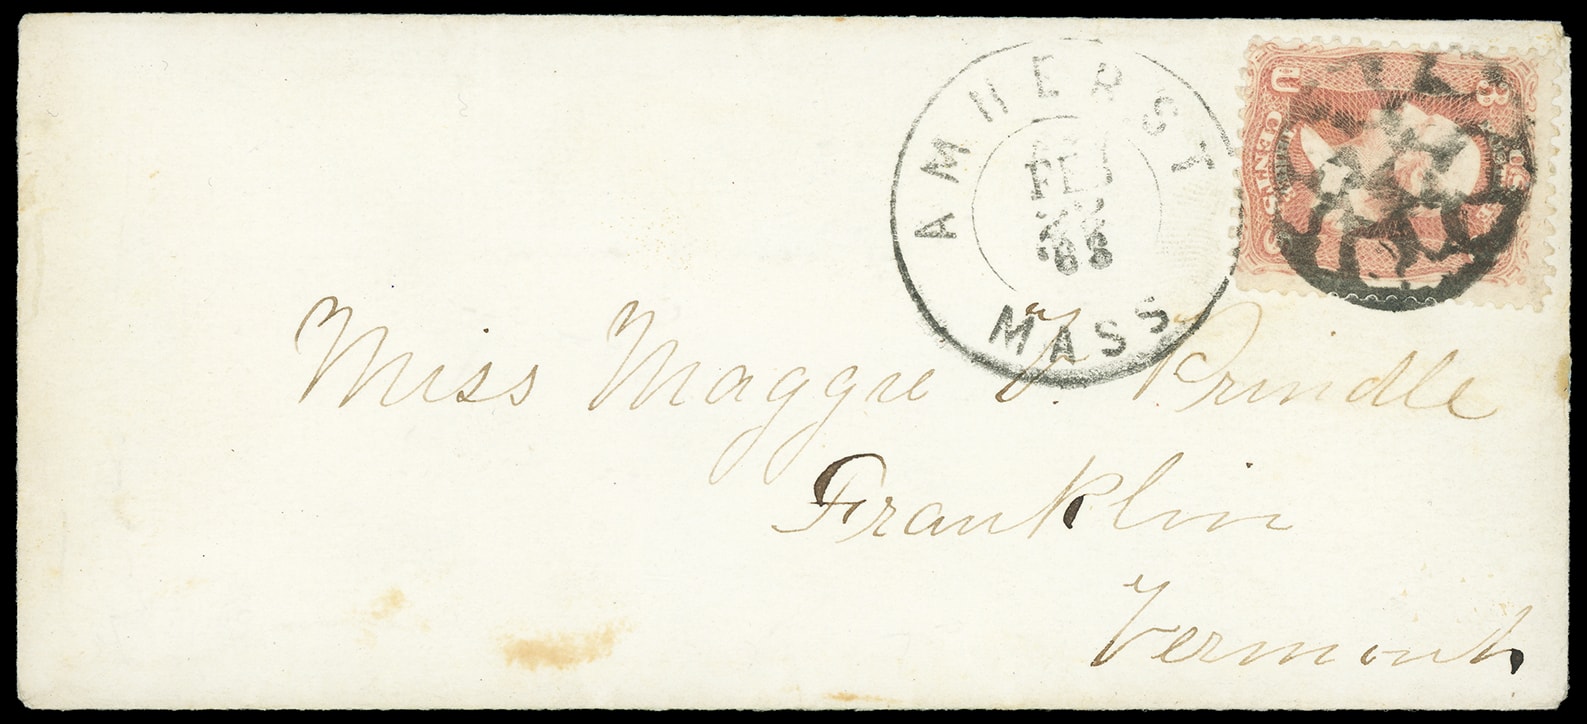 AMHERST
FEB
'68
MASS
U 3
CENTS
Miss Maggie V. Prindle
Franklin
Vermont